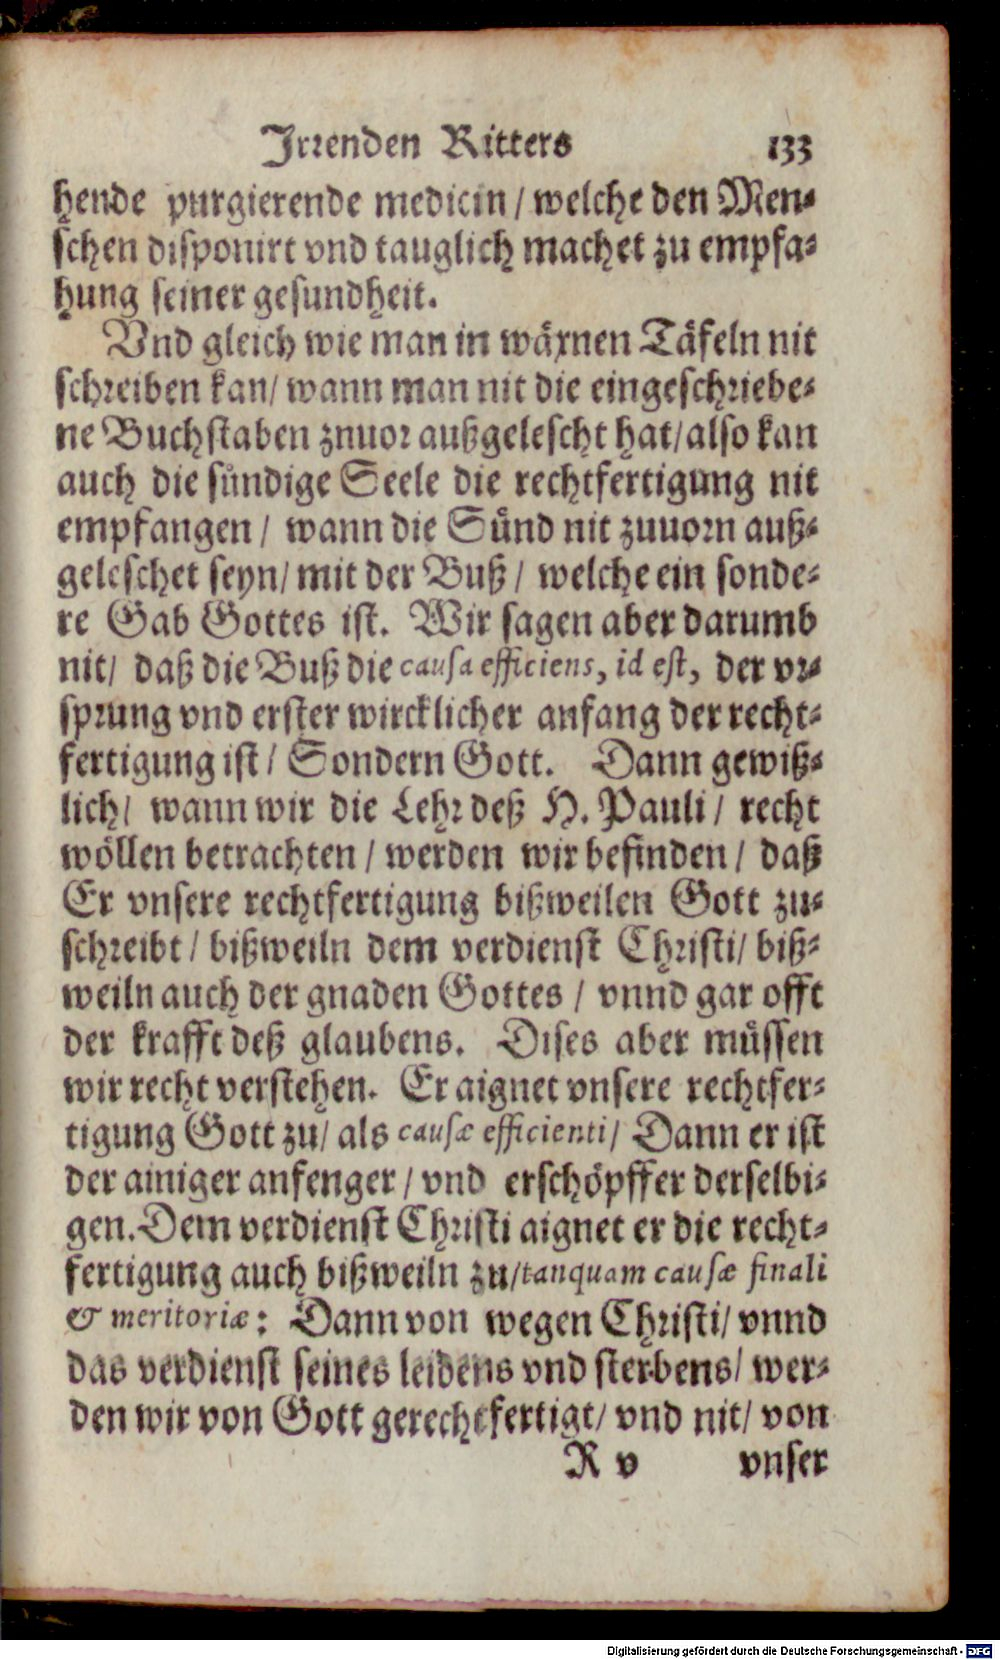 Irrenden Ritters 133
hende purgierende medicin / welche den Men-
schen disponirt vnd tauglich machet zu empfa-
hung seiner gesundheit.
Vnd gleich wie man in wäxnen Täfeln nit
schreiben kan / wann man nit die eingeschriebe-
ne Buchstaben znuor außgelescht hat / also kan
auch die sündige Seele die rechtfertigung nit
empfangen / wann die Sünd nit zuuorn auß-
geleschet seyn / mit der Buß / welche ein sonde-
re Gab Gottes ist. Wir sagen aber darumb
nit / daß die Buß die causa efficiens, id est, der vr-
sprung vnd erster wircklicher anfang der recht-
fertigung ist / Sondern Gott. Dann gewiß-
lich / wann wir die Lehr deß H. Pauli / recht
wöllen betrachten / werden wir befinden / daß
Er vnsere rechtfertigung bißweilen Gott zu-
schreibt / bißweiln dem verdienst Christi / biß-
weiln auch der gnaden Gottes / vnnd gar offt
der krafft deß glaubens. Dises aber müssen
wir recht verstehen. Er aignet vnsere rechtfer-
tigung Gott zu / als causæ efficienti / Dann er ist
der ainiger anfenger / vnd erschöpffer derselbi-
gen. Dem verdienst Christi aignet er die recht-
fertigung auch bißweiln zu / tanquam causæ finali
& meritoriæ: Dann von wegen Christi / vnnd
das verdienst seines leidens vnd sterbens / wer-
den wir von Gott gerechtfertigt / vnd nit / von
R v vnser
Digitalisierung gefördert durch die Deutsche Forschungsgemeinschaft - DFG